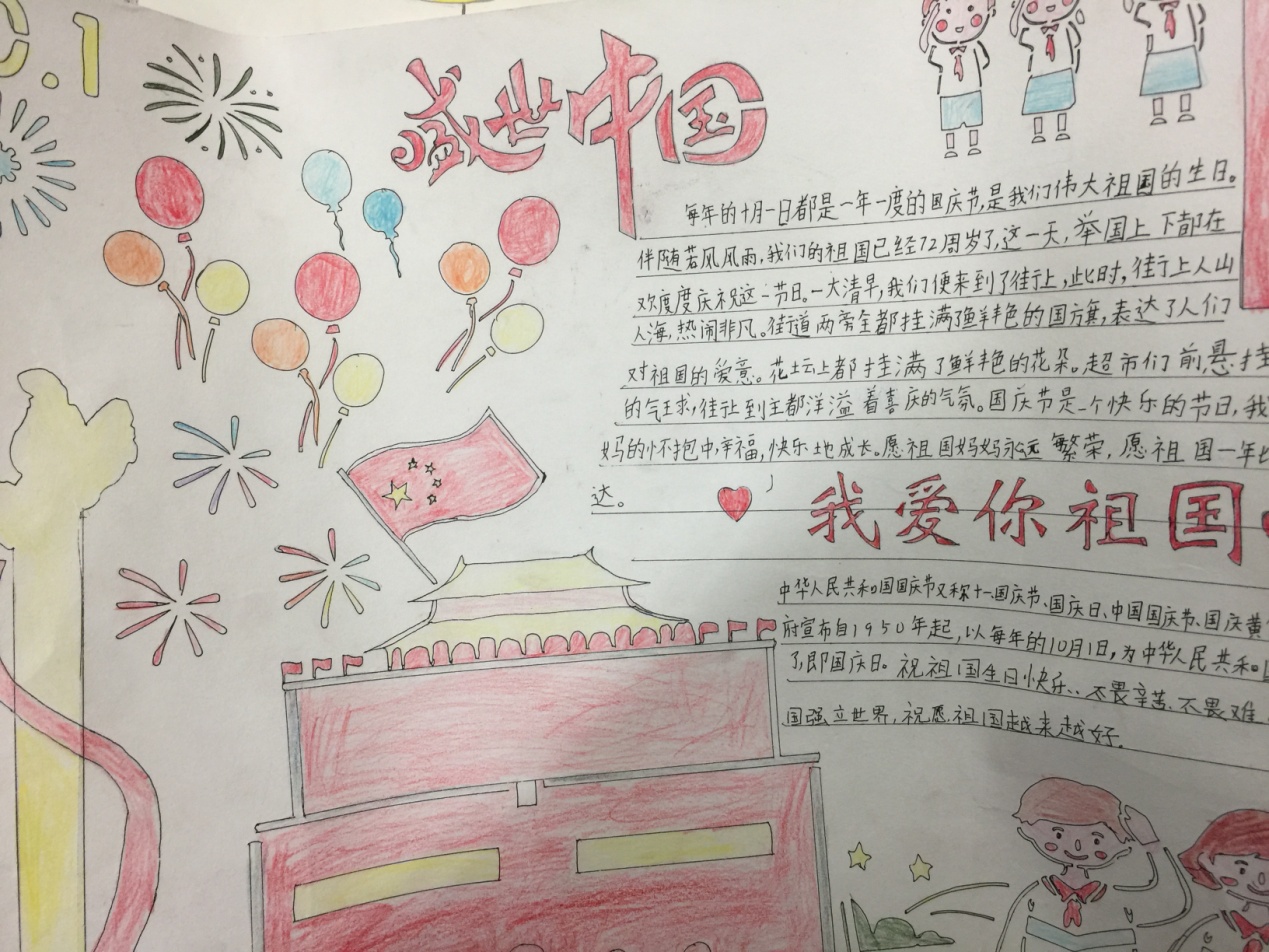 0.1
盛世中国
每年的十月一日都是一年一度的国庆节,是我们伟大祖国的生日。
伴随若风风雨,我们的祖国已经72周岁了,这一天,举国上下都在
欢度度庆祝这一节日。一大清早,我们便来到了街上,此时,街上人山
人海,热闹非凡。街道两旁全都挂满了鲜丰色的国旗,表达了人们
对祖国的爱意。花坛上都挂满了鲜丰色的花朵。超市们前悬挂
的气球,往让到主都洋溢着喜庆的气氛。国庆节是一个快乐的节日,我
妈的怀抱中,幸福,快乐地成长。愿祖国妈妈永远繁荣,愿祖国一年比
达。
我爱你祖国
中华人民共和国国庆节又称十一国庆节、国庆日、中国国庆节、国庆黄
府宣布自1950年起,以每年的10月1日,为中华人民共和
了,即国庆日。祝祖国生日快乐..不畏辛苦.不畏难
国强立世界,祝愿祖国越来越好.